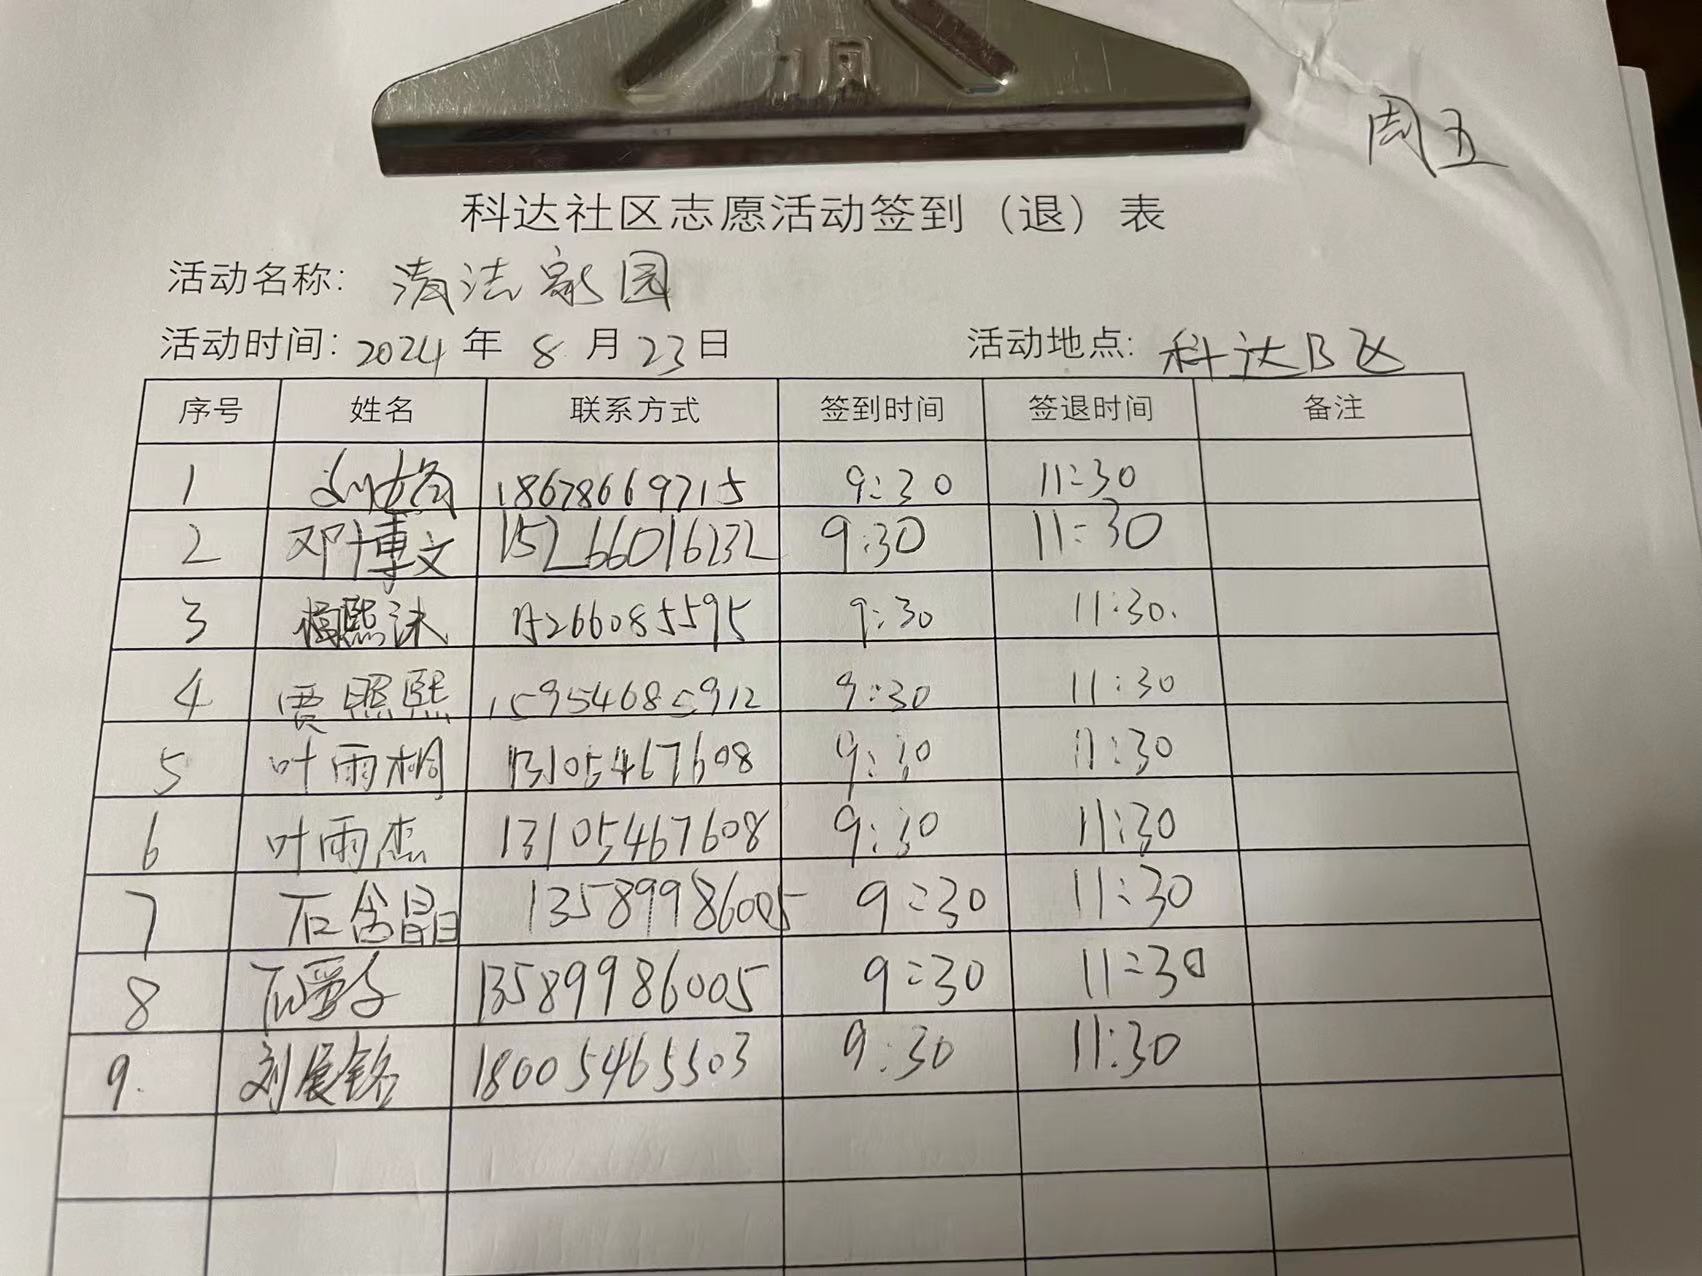 周五
科达社区志愿活动签到（退）表
活动名称: 清洁家园
活动时间: 2024 年 8 月 23 日 活动地点: 科达B区
序号 姓名 联系方式 签到时间 签退时间 备注
1 18678669715 9:30 11:30
2 邓博文 15266016232 9:30 11:30
3 杨熙沫 15266085595 9:30 11:30.
4 贾照熙 15954685912 9:30 11:30
5 叶雨桐 13105467608 9:30 11:30
6 叶雨杰 13105467608 9:30 11:30
7 石含晶 13589986005 9:30 11:30
8 13589986005 9:30 11:30
9. 刘晨铭 18005465503 9:30 11:30